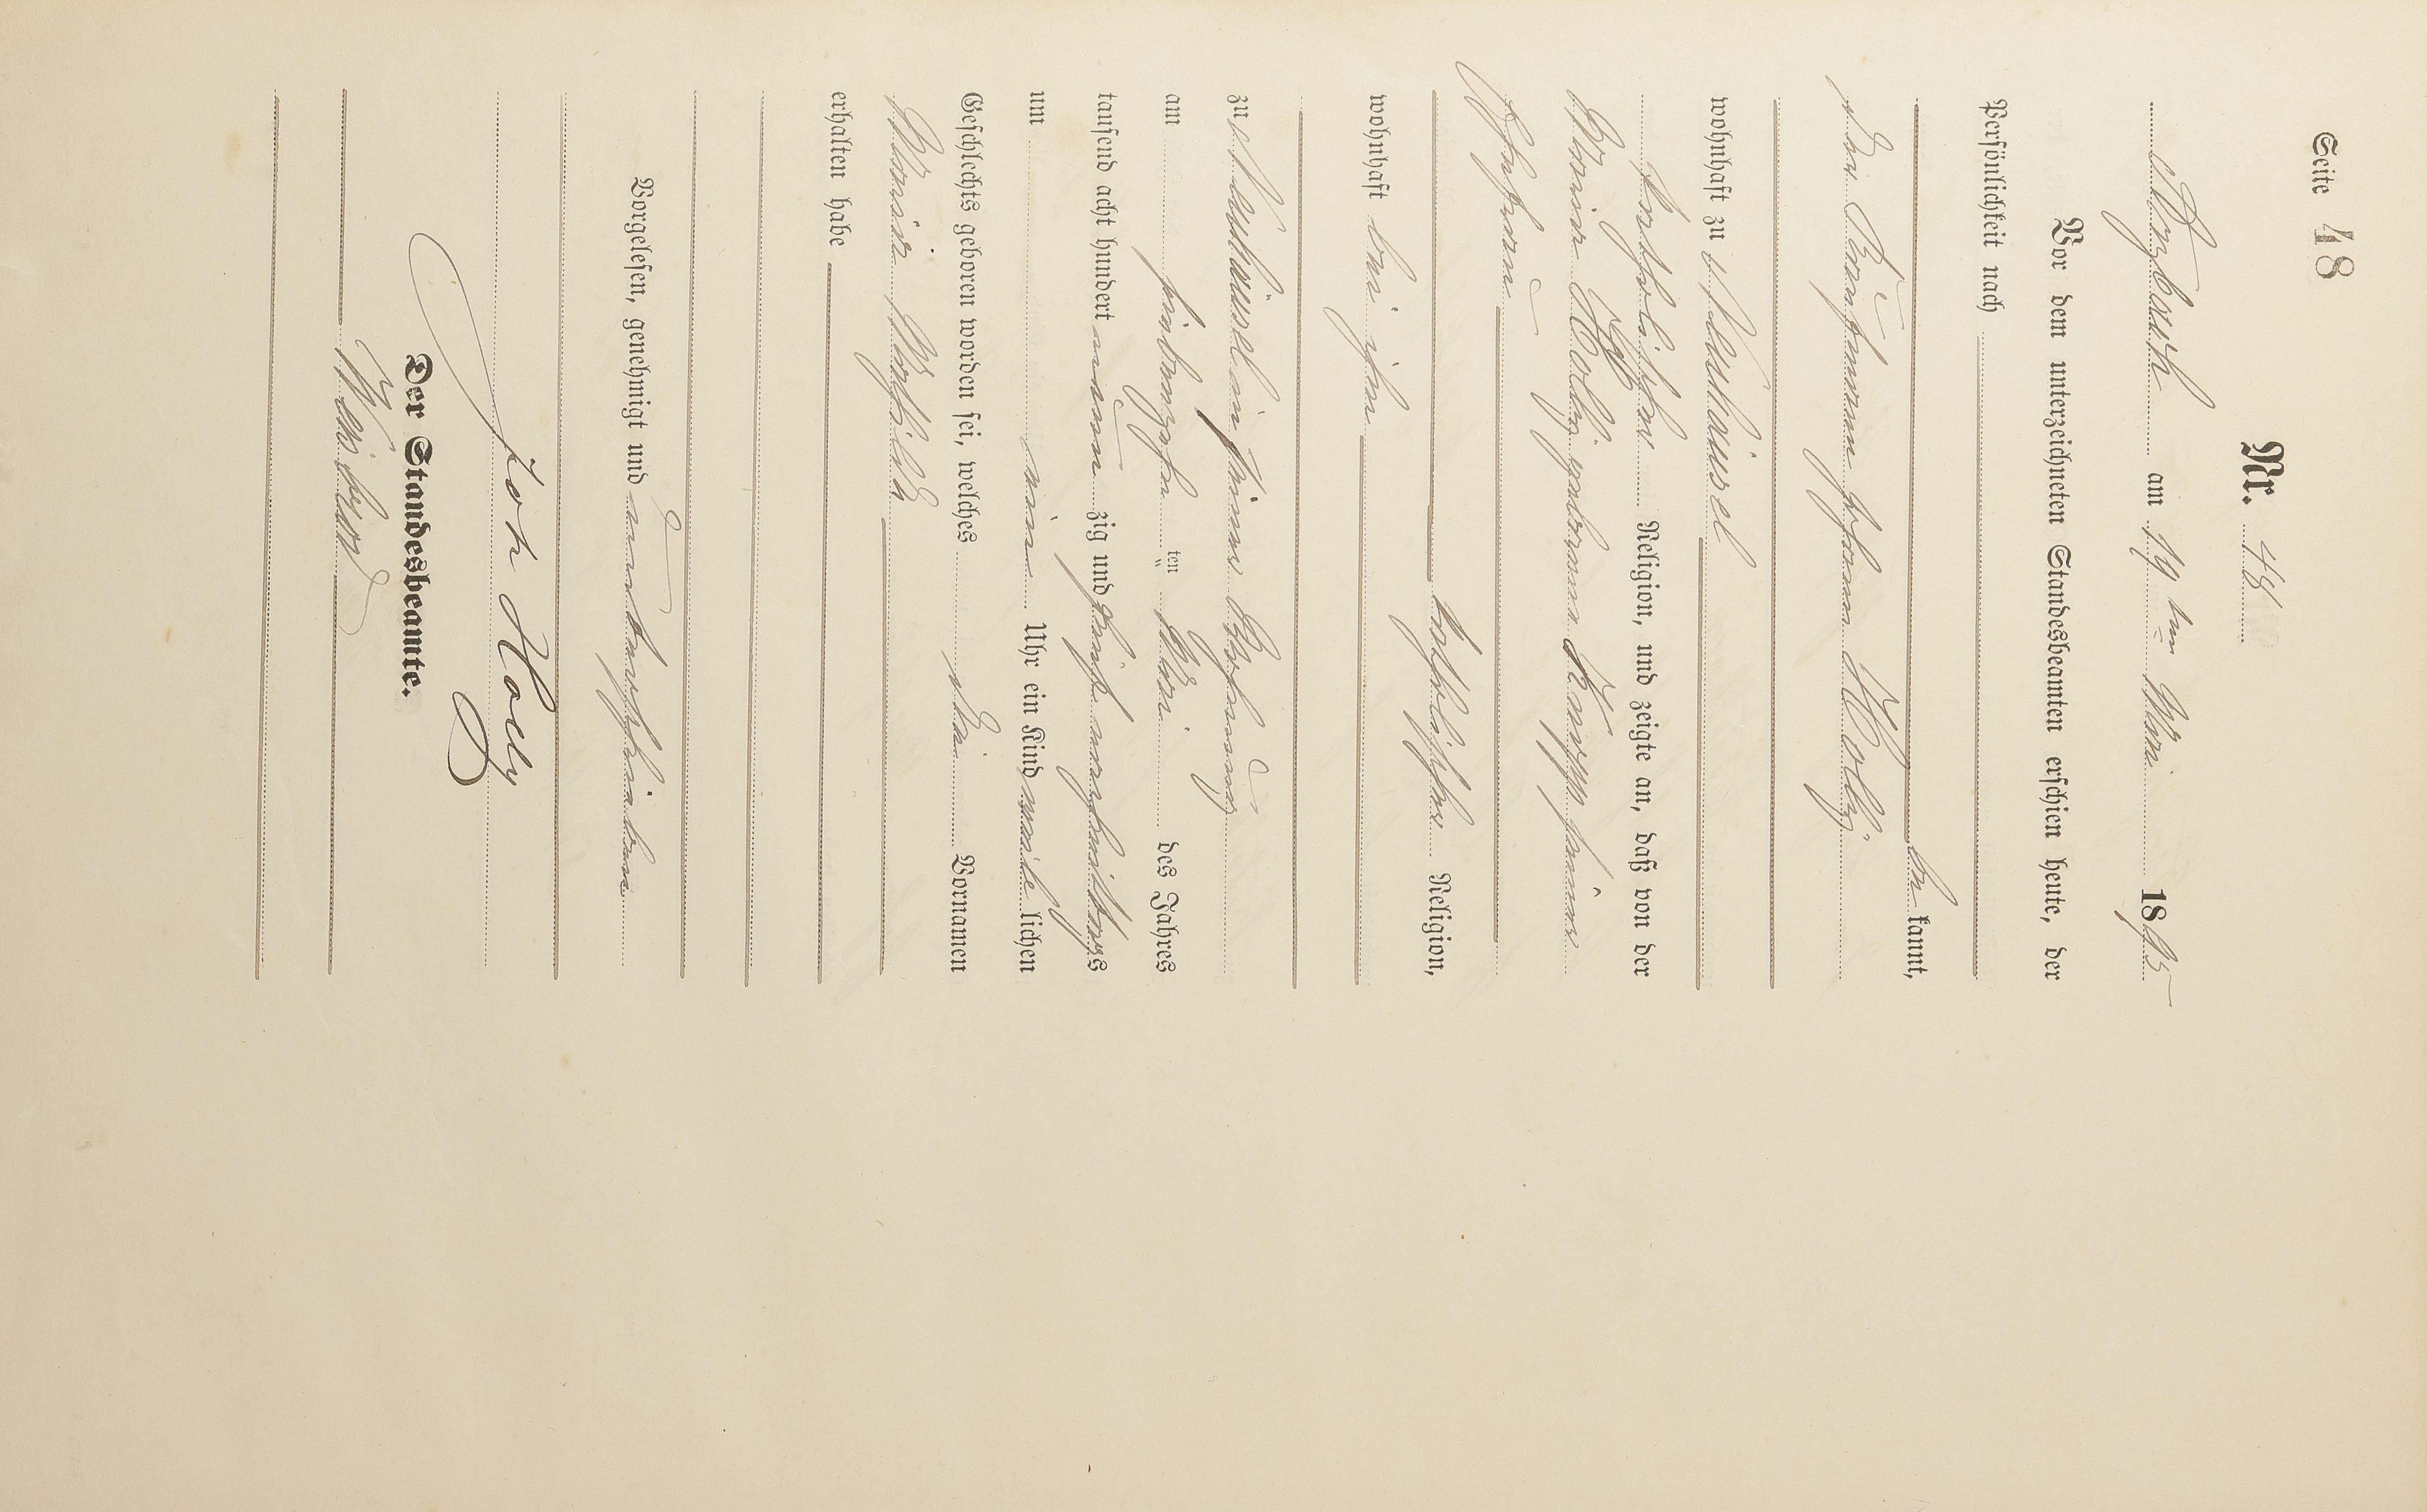 Seite 48
Nr. 48
Arzbach am 19ten Mai 1895
Vor dem unterzeichneten Standesbeamten erschien heute, der
Persönlichkeit nach
be kannt,
der Kaufmann Johann Holly
wohnhaft zu Neuhäusel
katholischer Religion, und zeigte an, daß von der
Maria Holly geborene Knopp seiner
Ehefrau
katholischer Religion,
wohnhaft bei ihm
zu Neuhäusel in seiner Wohnung
am siebenzehn ten Mai des Jahres
tausend acht hundert neun zig und fünf nachmittags
um Uhr ein Kind weib lichen
Geschlechts geboren worden sei, welches die Vornamen
Maria Mathilde
erhalten habe
Vorgelesen, genehmigt und unterschrieben
Joh Holly
Der Standesbeamte.
Weisbrod